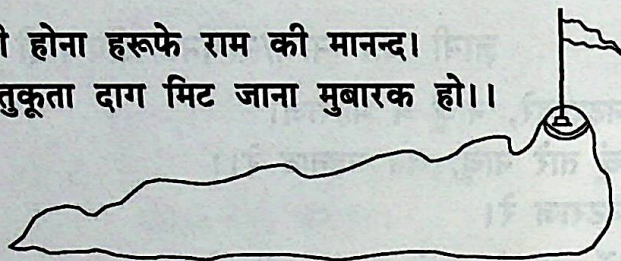 होना हरूफे राम की मानन्द।
तुकूता दाग मिट जाना मुबारक हो।।